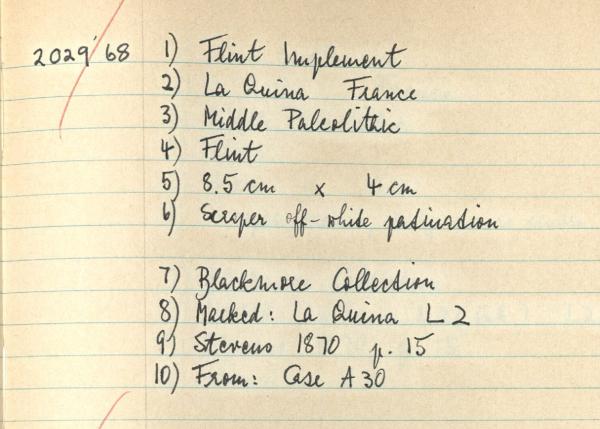 2029'68 1) Flint Implement
2) La Quina France
3) Middle Paleolithic
4) Flint
5) 8.5 cm x 4 cm
6) Scraper off-white patination
7) Blackmore Collection
8) Marked: La Quina L 2
9) Stevens 1870 p. 15
10) From: Case A 30